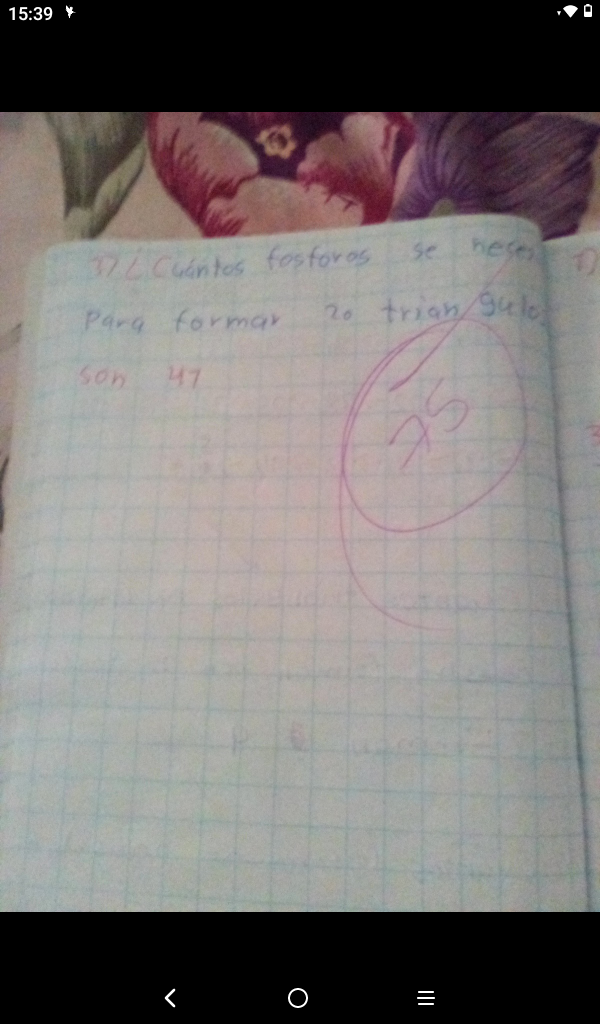 15:39
37 ¿Cuántos fosforos se neses
Para formar 20 trian gulos
son 41